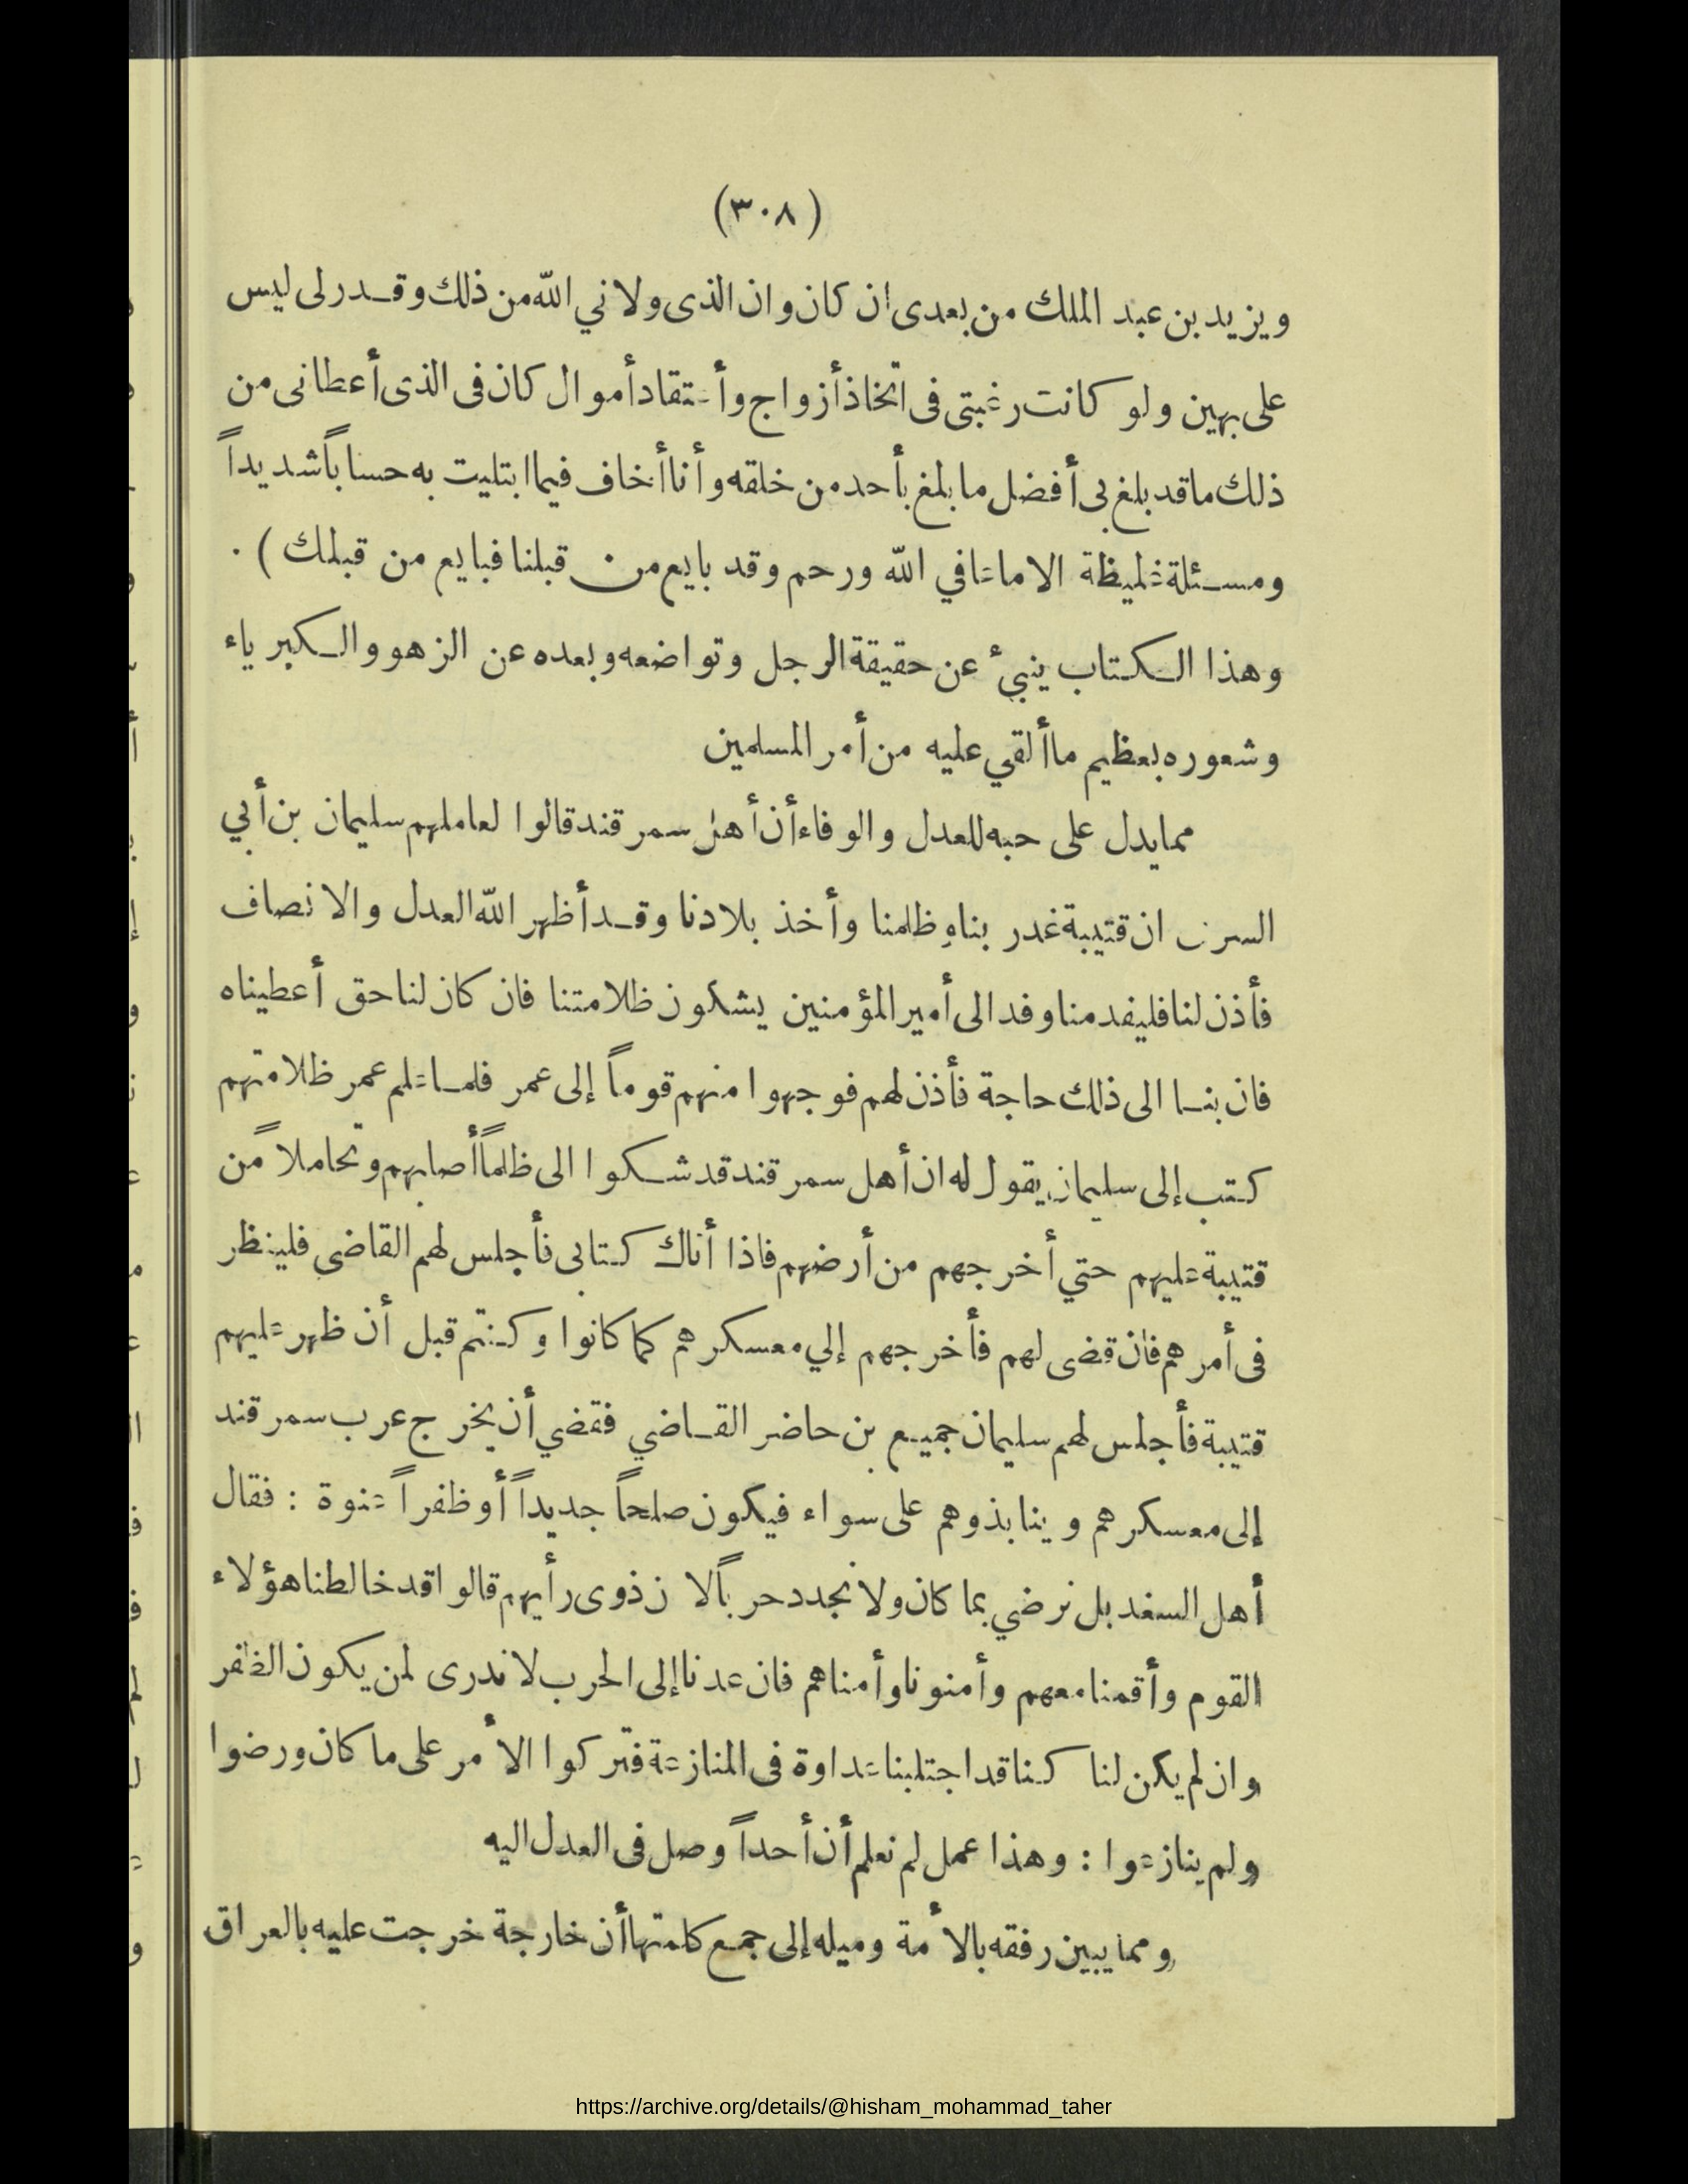 (٣٠٨)
ويزيد بن عبد الملك من بعدى ان كان وان الذى ولاني الله من ذلك وقدر لى ليس
على بهين ولو كانت رغبتى فى اتخاذ أزواج وأعتقاد أموال كان فى الذى أعطانى من
ذلك ما قد بلغ بى أفضل ما بلغ بأحد من خلقه وأنا أخاف فيما ابتليت به حساباً شديداً
ومسئلة غليظة الا ما عافي الله ورحم وقد بايع من قبلنا فبايع من قبلك) .
وهذا الكتاب ينبئ عن حقيقة الرجل وتواضعه وبعده عن الزهو والكبرياء
وشعوره بعظيم ما ألقي عليه من أمر المسلمين
مما يدل على حبه للعدل والوفاء أن أهل سمرقند قالوا لعاملهم سليمان بن أبي
السرى ان قتيبة غدر بنا وظلمنا وأخذ بلادنا وقد أظهر الله العدل والانصاف
فأذن لنا فليفد منا وفد الى أمير المؤمنين يشكون ظلامتنا فان كان لنا حق أعطيناه
فان بنا الى ذلك حاجة فأذن لهم فوجهوا منهم قوماً إلى عمر فلما علم عمر ظلامتهم
كتب إلى سليمان يقول له ان أهل سمرقند قد شكوا الى ظلماً أصابهم وتحاملاً من
قتيبة عليهم حتي أخرجهم من أرضهم فاذا أتاك كتابى فأجلس لهم القاضى فلينظر
فى أمرهم فان قضى لهم فأخرجهم إلي معسكرهم كما كانوا وكنتم قبل أن ظهر عليهم
قتيبة فأجلس لهم سليمان جميع بن حاضر القاضي فقضي أن يخرج عرب سمرقند
إلى معسكرهم وينابذوهم على سواء فيكون صلحاً جديداً أو ظفراً عنوة : فقال
أهل السغد بل نرضي بما كان ولا نجدد حرباً لان ذوى رأيهم قالوا قد خالطنا هؤلاء
القوم وأقمنا معهم وأمنونا وأمناهم فان عدنا إلى الحرب لا ندرى لمن يكون الظفر
وان لم يكن لنا كنا قد اجتلبنا عداوة فى المنازعة فتركوا الأمر على ما كان ورضوا
ولم ينازعوا : وهذا عمل لم نعلم أن أحداً وصل فى العدل اليه
ومما يبين رفقه بالأمة وميله إلى جمع كلمتها أن خارجة خرجت عليه بالعراق
https://archive.org/details/@hisham_mohammad_taher